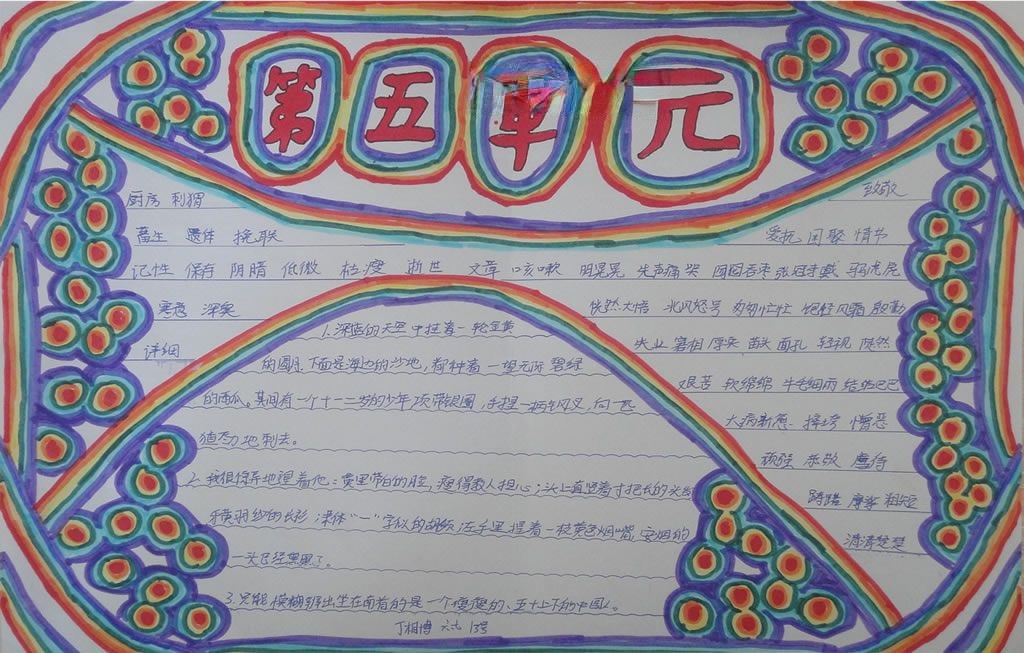 第五单元
厨房 刺猬 致敬
畜生 遗体 挽联 爱抚 团聚 情节
记性 保存 阴暗 低微 枯瘦 逝世 文章 咳嗽 明晃晃 失声痛哭 囫囵吞枣 张冠李戴 马马虎虎
寒意 深奥 恍然大悟 北风怒号 匆匆忙忙 饱经风霜 殷勤
详细 失业 窘相 厚实 苗头 面孔 轻视 陡然
1.深蓝的天空中挂着一轮金黄
的圆月,下面是海边的沙地,都种着一望无际碧绿
的西瓜。其间有一个十一二岁的少年,项带银圈,手捏一柄钢叉,向一匹
地刺去。
艰苦 软绵绵 牛毛细雨 结结巴巴
大病新愈 搏 憎恶
顽强 恭敬 虐待
踌躇 摩挲 粗短
清清楚楚
2.我很惊异地望着他:黄里带白的脸,瘦得教人担心;头上直竖着寸把长的头
牙黄羽纱的长衫 隶体“一”字似的胡须 左手里捏着一枝黄色烟嘴,安烟的
一头已经熏黑了。
3.只能模糊辨出坐在南首的是一个瘦瘦的、五十上下的中国人。
丁相博 六七 13号